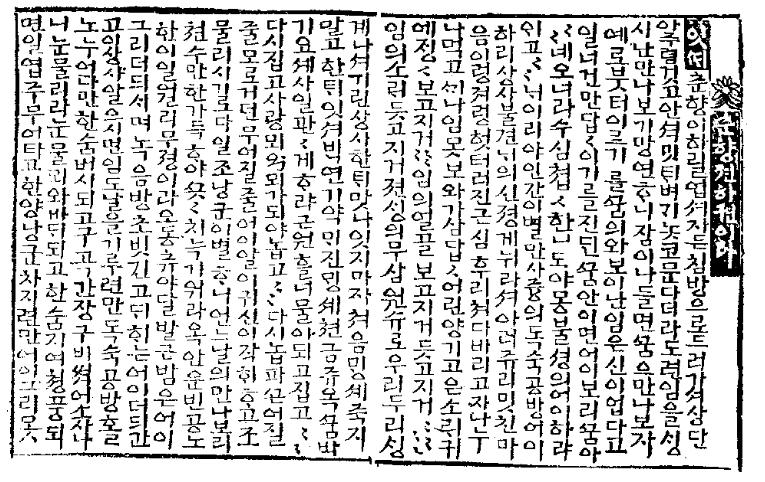 춘향젼하권이라
잇ᄯᅢ춘향이하릴업셔자든침방으로드러가셔상단
아주렴거고안셕밋틔벼기놋코문다더라도련임을싱
시난만나보기망연ᄒᆞ니잠이나들면ᄭᅮᆷ으만나보자
예로붓터이르기를ᄭᅮᆷ의와보이난임은신이업다고
일너건만답〱이기를진된ᄭᅮᆷ안이면어이보리ᄭᅮᆷ아
〱네오너라수심쳡〱한니도야몽불셩의어이하랴
이고〱니이리야인간이별만사즁의독숙공방어이
하리상사불견늬의신졍계뉘라셔아러쥬리밋친마
음이렁져렁헛터러진근심후리쳐다바리고자나누
나먹고ᄭᅵ나임못보와가삼답〱어린양기고은소리귀
에징〱보고지거〱〱임의얼골보고지거듯고지거〱〱
임의소리듯고지거젼싱의무삼원슈로우리두리싱
계나셔기린상사한틔만나잇지마자쳐음밍셰죽지
말고한틔잇셔빅연기약미진밍셰쳔금쥬옥ᄭᅮᆷ바
기요셰사일관〱게ᄒᆞ랴근원흘너물이되고깁고〱〱
다시깁고사랑뫼와뫼가되야놉고〱〱다시놉파ᄭᅳᆫ어질
줄모로거던무어질줄어이알이귀신이작희ᄒᆞ고조
물리시긔로다일조낭군이별ᄒᆞ니어느날의만나보리
쳔수만한가득ᄒᆞ야ᄭᅳᆺ〱치늑기워라옥안운빈공노
한이일월리무졍이라오동츄야달발근밤은어이
그리더듸시며녹음방초빗긴고듸ᄒᆡ는어이더듸간
고이상사알으시면임도날을기루련만독숙공방홀
노누어다만한숨벗시되고구곡간장구비셕어소사나
니눈물리라눈물뫼와바ᄃᆡ되고한숨지여쳥풍되
면일엽주무어타고한양낭군차지련만어이그리못